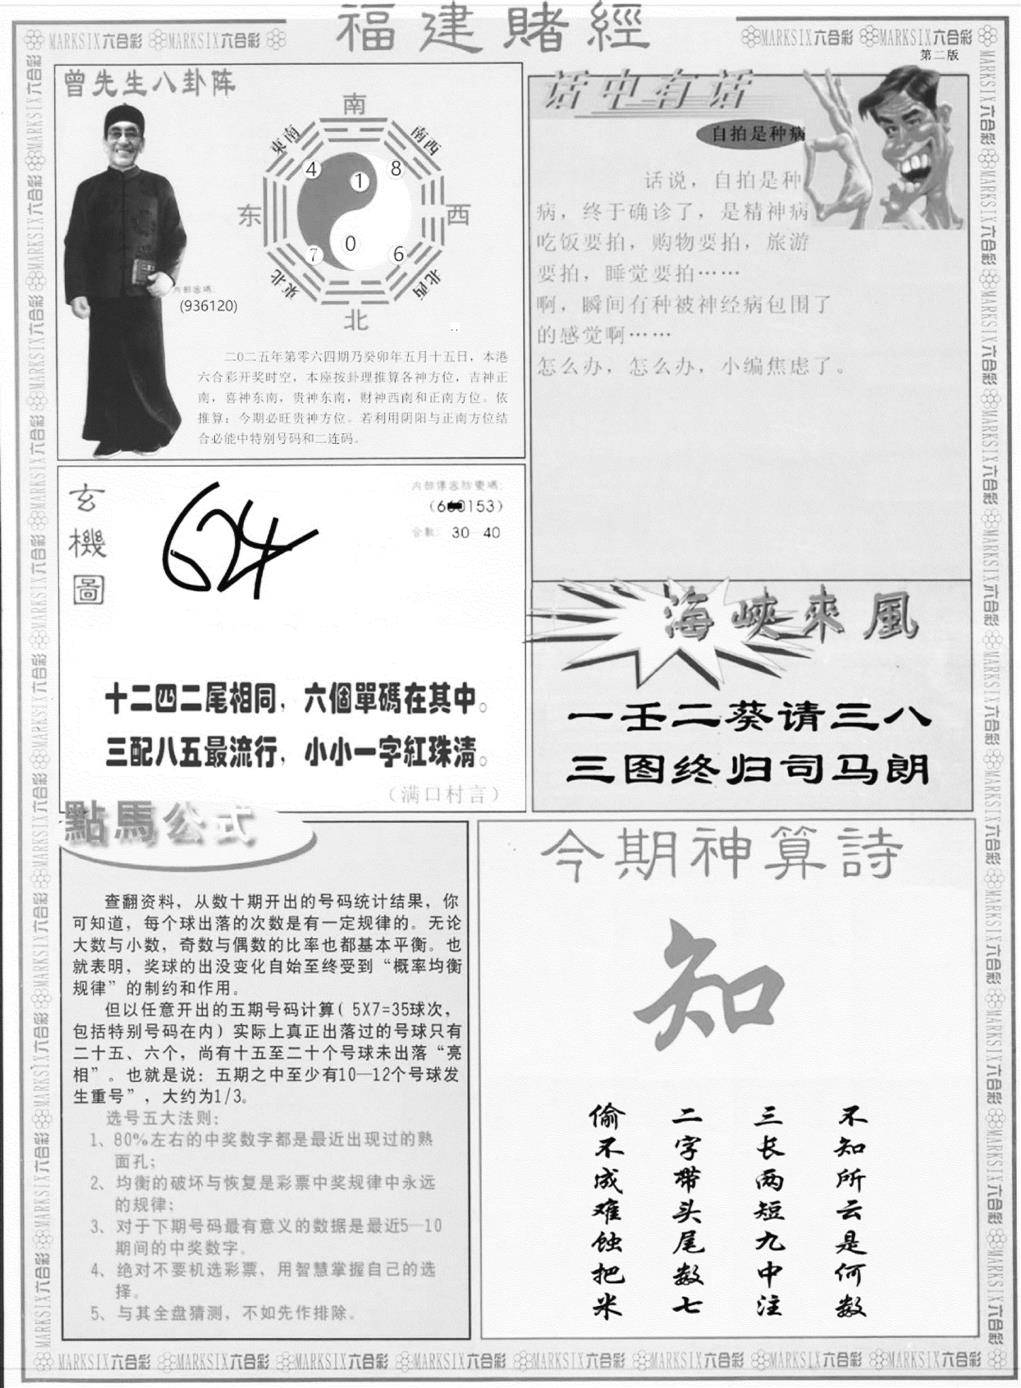 福建賭經
MARKSIX六合彩 MARKSIX六合彩
MARKSIX六合彩 MARKSIX六合彩
第二版
曾先生八卦阵
南
東南
南西
4
1
8
东
西
7
0
6
東北
北西
北
内部密碼:
(936120)
二0二五年第零六四期乃癸卯年五月十五日，本港
六合彩开奖时空，本座按卦理推算各神方位，吉神正
南，喜神东南，贵神东南，财神西南和正南方位。依
推算：今期必旺贵神方位。若利用阴阳与正南方位结
合必能中特别号码和二连码。
话中有话
自拍是种病
话说，自拍是种
病，终于确诊了，是精神病
吃饭要拍，购物要拍，旅游
要拍，睡觉要拍……
啊，瞬间有种被神经病包围了
的感觉啊……
怎么办，怎么办，小编焦虑了。
玄機圖
624
30 40
十二四二尾相同，六個單碼在其中。
三配八五最流行，小小一字紅珠清。
（满口村言）
海峽來風
一壬二葵请三八
三图终归司马朗
點馬公式
查翻资料，从数十期开出的号码统计结果，你
可知道，每个球出落的次数是有一定规律的。无论
大数与小数，奇数与偶数的比率也都基本平衡。也
就表明，奖球的出没变化自始至终受到“概率均衡
规律”的制约和作用。
但以任意开出的五期号码计算( 5X7=35球次，
包括特别号码在内）实际上真正出落过的号球只有
二十五、六个，尚有十五至二十个号球未出落“亮
相”。也就是说：五期之中至少有10—12个号球发
生重号”，大约为1/3。
选号五大法则：
1、80%左右的中奖数字都是最近出现过的熟
面孔；
2、均衡的破坏与恢复是彩票中奖规律中永远
的规律；
3、对于下期号码最有意义的数据是最近5—10
期间的中奖数字。
4、绝对不要机选彩票，用智慧掌握自己的选
择。
5、与其全盘猜测，不如先作排除。
今期神算詩
知
不知所云是何数
三长两短九中注
二字带头尾数七
偷不成难蚀把米
MARKSIX六合彩 MARKSIX六合彩 MARKSIX六合彩 MARKSIX六合彩 MARKSIX六合彩 MARKSIX六合彩 MARKSIX六合彩 MARKSIX六合彩